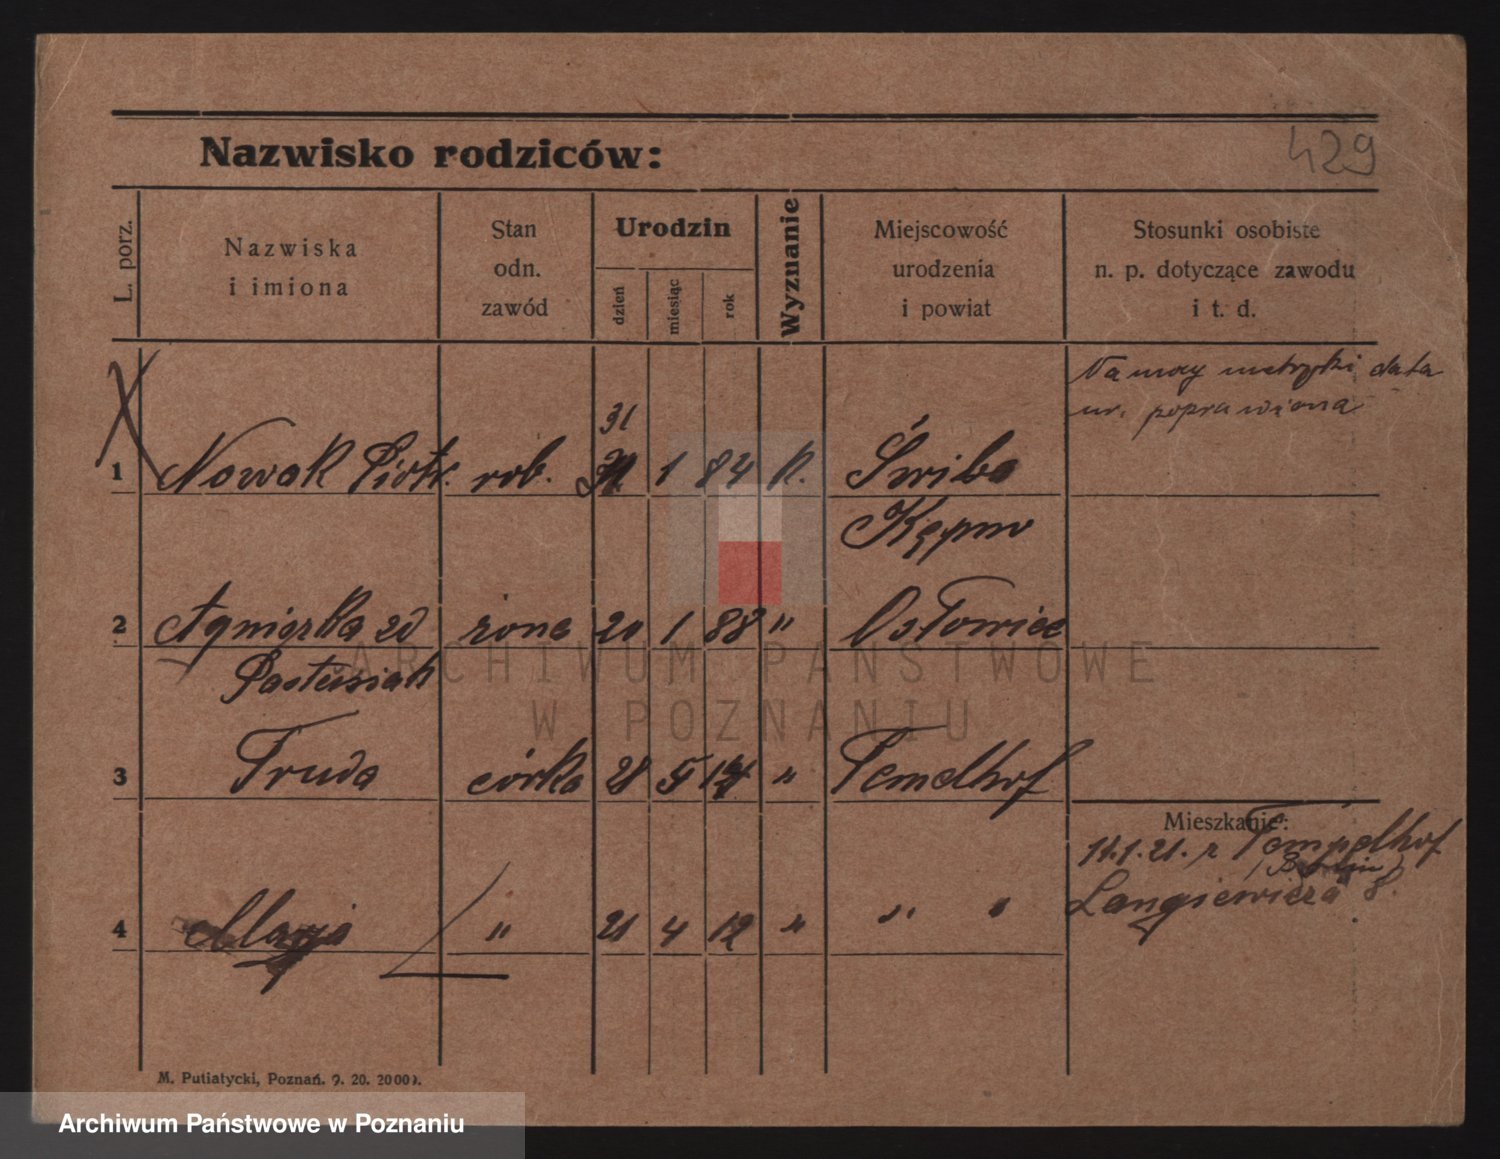 Nazwisko rodziców:
429
L. porz.
Nazwiska
i imiona
Stan
odn.
zawód
Urodzin
dzień
miesiąc
rok
Wyznanie
Miejscowość
urodzenia
i powiat
Stosunki osobiste
n. p. dotyczące zawodu
i t. d.
Na mocy metryki data
ur. poprawiona
31
1 Nowak Piotr. rob. 1 84 k. Świba
Kępno
2 Agnieszka zd żona 20 1 88 " Osłowiec
Pastusiak
3 Truda córka 28 5 " Temelhof
Mieszkanie:
11.1.21. z Tempelhof
(Berlin)
Langiewicza 8.
4 Marja " 21 4 12 " " "
M. Putiatycki, Poznań. 9. 20. 20000.
ARCHIWUM PAŃSTWOWE
W POZNANIU
Archiwum Państwowe w Poznaniu